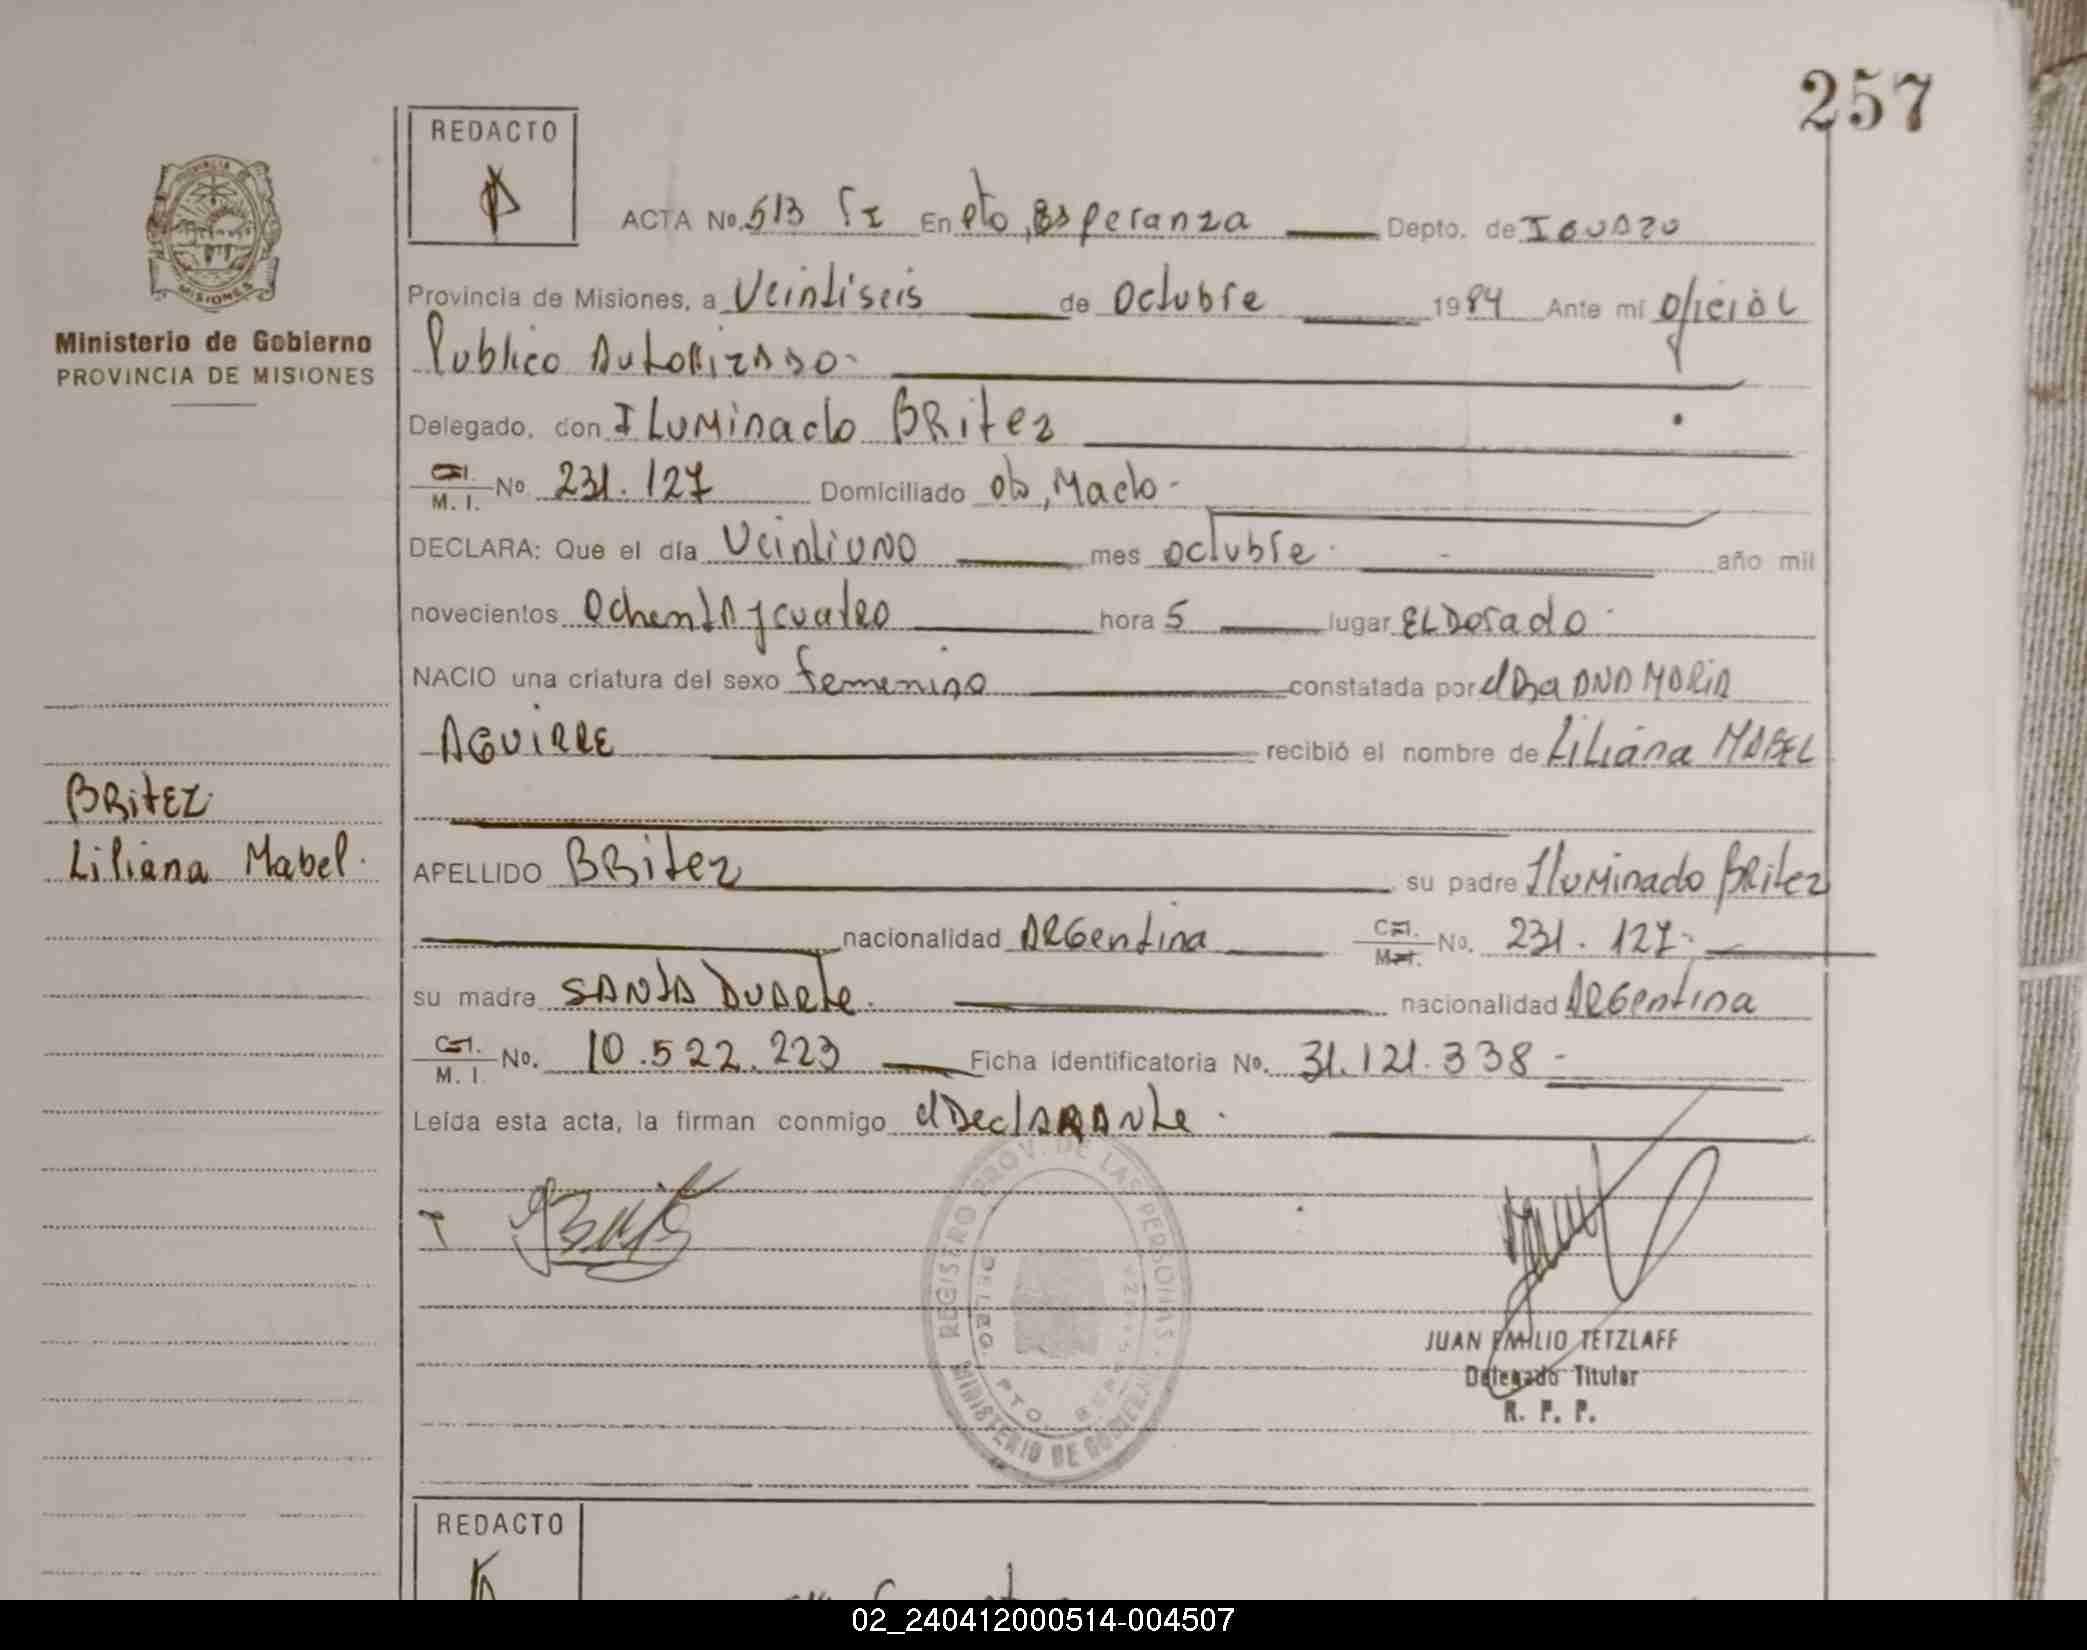 257
REDACTO
ACTA No. 513 TI En Pto, Esperanza Depto. de IGUAZU
Provincia de Misiones, a Veintiseis de Octubre 1984 Ante mi Oficial
Publico AUTORIZADO
Delegado, don ILUMinado BRitez
C.I. M. I. No 231.127 Domiciliado Wanda
DECLARA: Que el día Veintiuno mes octubre año mil
novecientos Ochenta y cuatro hora 5 lugar ELDorado
NACIO una criatura del sexo femenino constatada por dDra ANA MARIA
AGUIRRE recibió el nombre de LiLiana MABEL
APELLIDO BRitez su padre Iluminado BRitez
nacionalidad ARGentina C.I. M.I. No. 231.127
su madre SANTA DUARte nacionalidad ARGentina
C.I. M. I. No. 10.522.223 Ficha identificatoria No. 31.121.338
Leída esta acta, la firman conmigo el DeclARANte
PROVINCIA DE
MISIONES
Ministerio de Gobierno
PROVINCIA DE MISIONES
BRitEZ
Liliana Mabel
REGISTRO PROV. DE LAS PERSONAS
MINISTERIO DE GOBIERNO
PTO. ESPERANZA
JUAN EMILIO TETZLAFF
Delegado Titular
R. P. P.
REDACTO
02_240412000514-004507